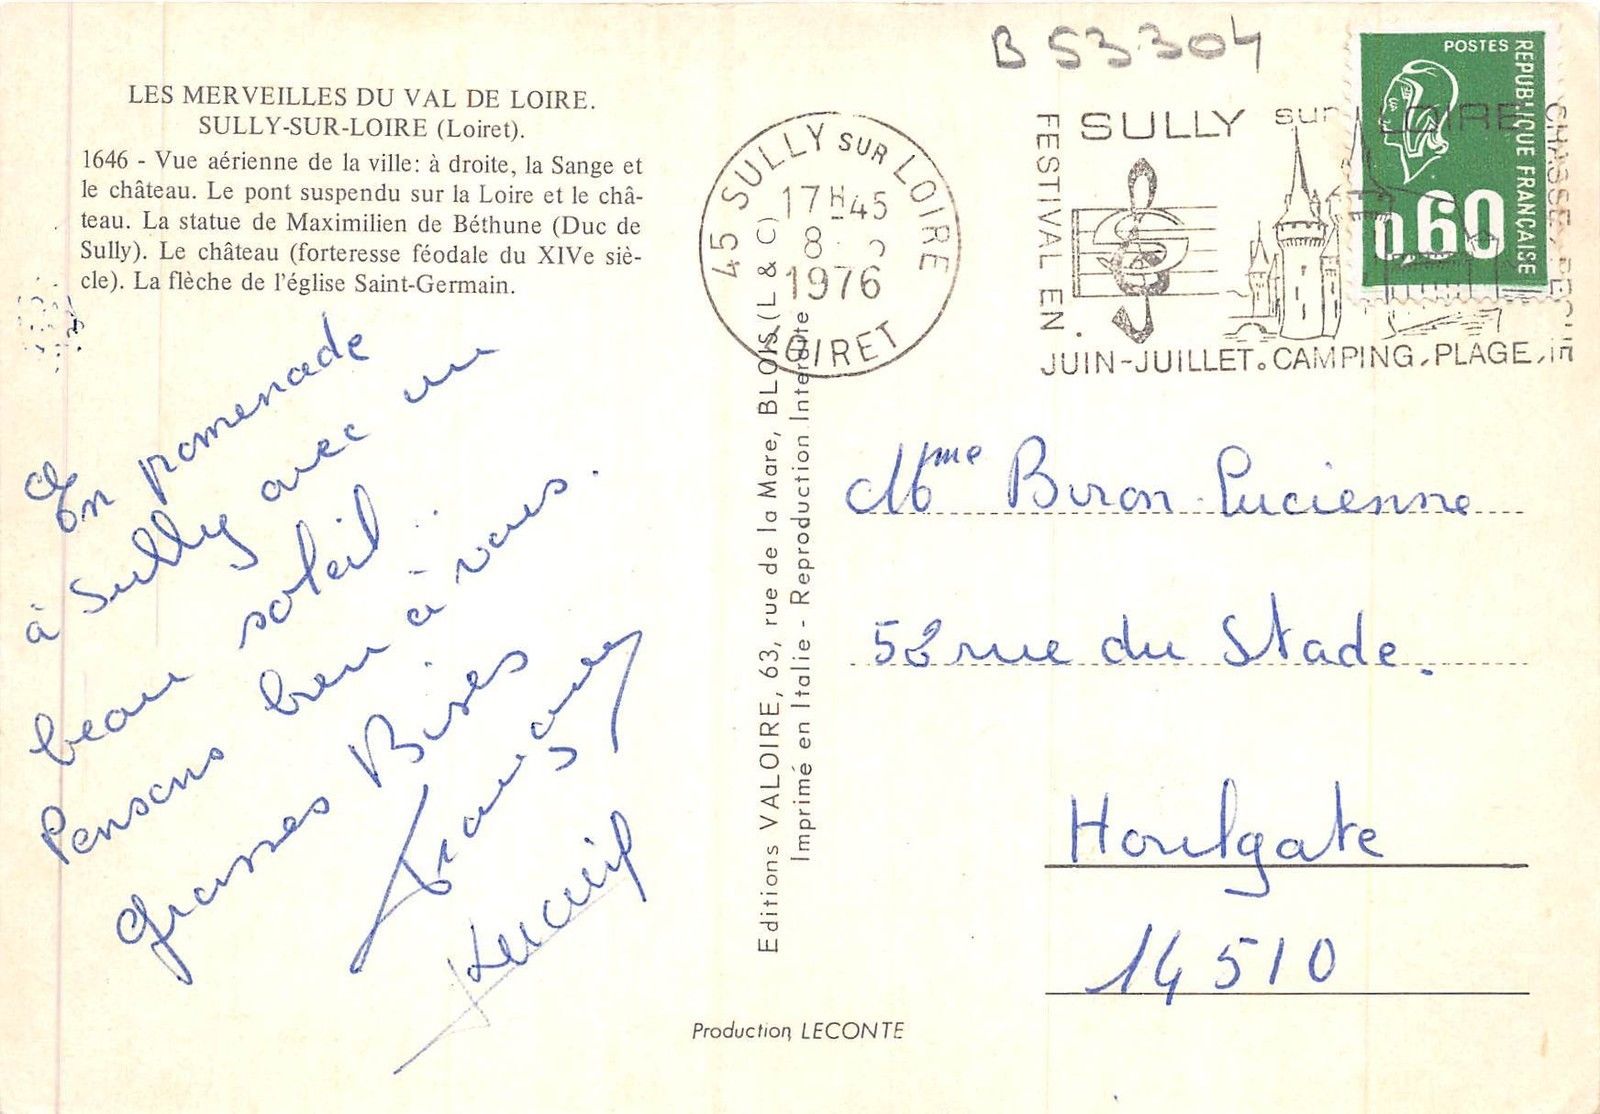 B 53304
LES MERVEILLES DU VAL DE LOIRE.
SULLY-SUR-LOIRE (Loiret).
1646 - Vue aérienne de la ville: à droite, la Sange et
le château. Le pont suspendu sur la Loire et le châ-
teau. La statue de Maximilien de Béthune (Duc de
Sully). Le château (forteresse féodale du XIVe siè-
cle). La flèche de l'église Saint-Germain.
En promenade
à Sully avec un
beau soleil..
Pensons bien à vous.
Grosses Bises
45 SULLY SUR LOIRE
17H45
8
1976
LOIRET
SULLY sur LOIRE
FESTIVAL EN
JUIN-JUILLET. CAMPING, PLAGE,
CHASSE
POSTES
REPUBLIQUE FRANÇAISE
0,60
Editions VALOIRE, 63, rue de la Mare, BLOIS (L & C)
Imprimé en Italie - Reproduction Interdite
Mme Biron Lucienne
52 rue du Stade.
Houlgate
14510
Production LECONTE